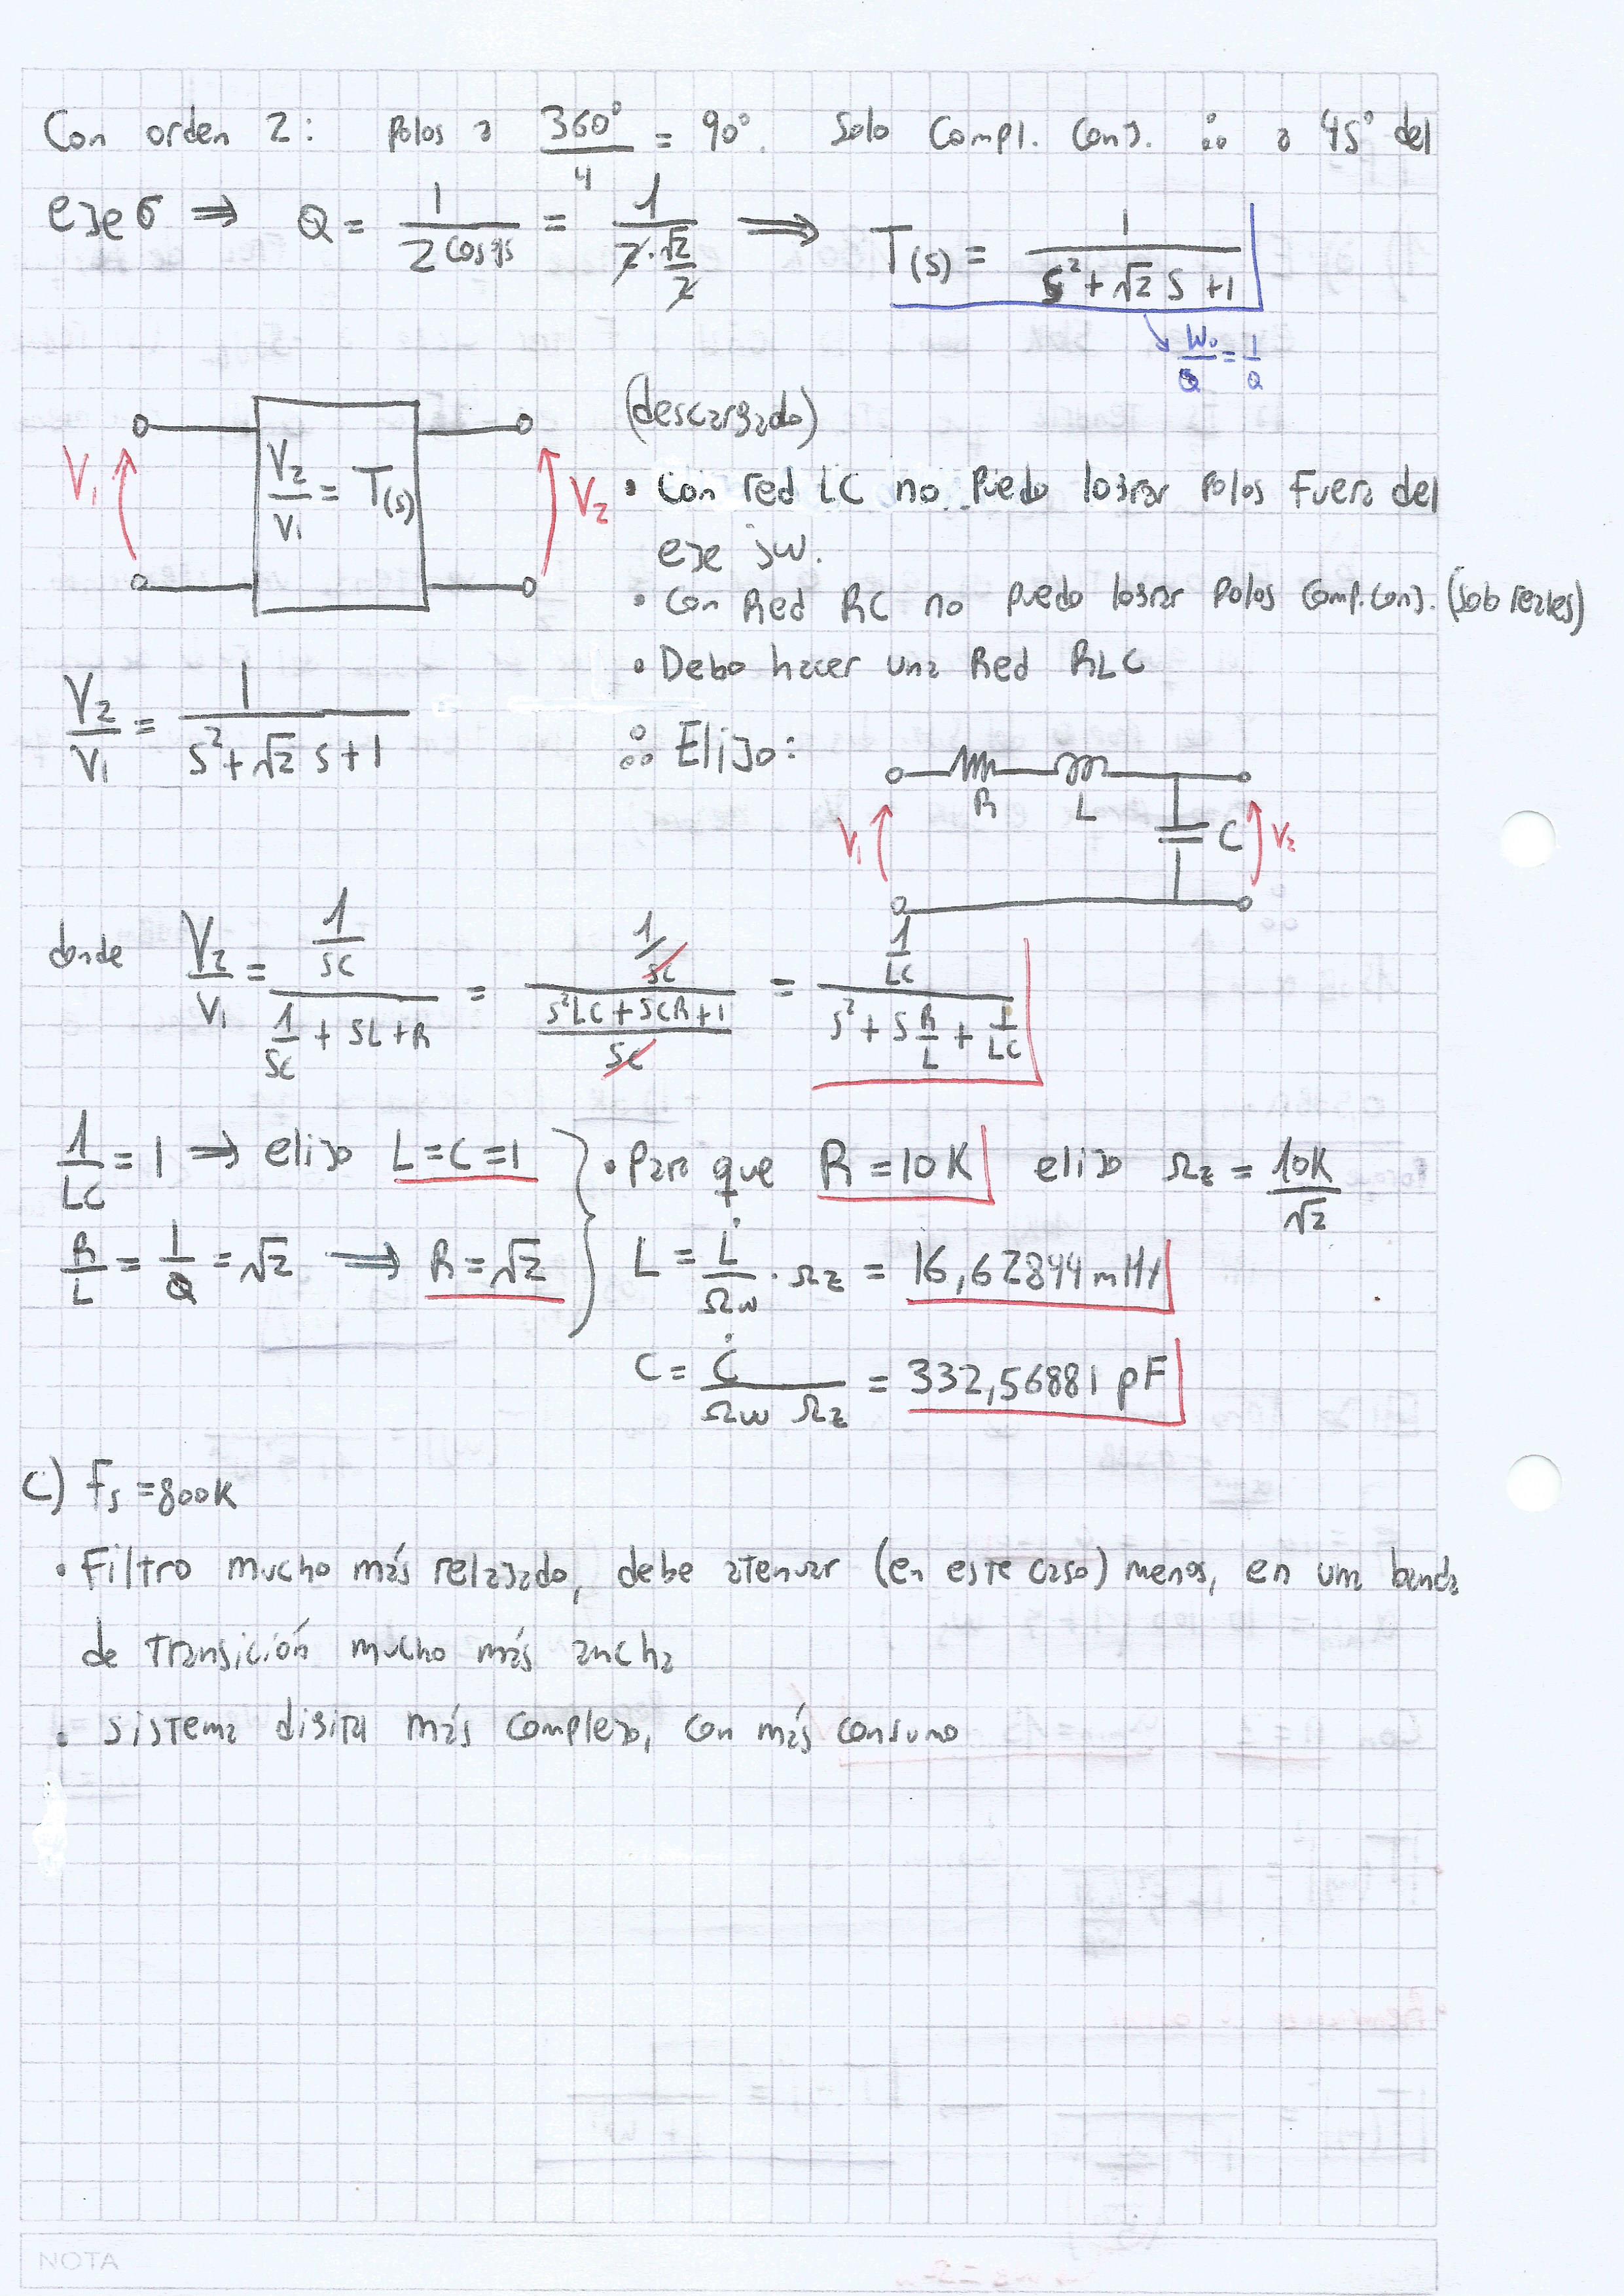 Con orden 2: Polos a 360°/4 = 90°. Solo Compl. Conj. ∴ a 45° del
eje σ ⇒ Q = 1/(2 cos 45) = 1/(2·√2/2) ⟹ T(s) = 1/(s² + √2 s + 1)
W₀/Q = 1/Q
(descargado)
V₁ V₂/V₁ = T(s) V₂
• Con red LC no puedo lograr polos fuera del
eje jw.
• Con Red RC no puedo lograr polos comp. conj. (solo reales)
• Debo hacer una Red RLC
V₂/V₁ = 1/(s² + √2 s + 1) ∴ Elijo:
R L
V₁ C V₂
donde V₂/V₁ = (1/sc)/(1/sc + sL + R) = (1/sc)/((s²LC + sCR + 1)/sc) = (1/LC)/(s² + s R/L + 1/LC)
1/LC = 1 ⇒ elijo L = C = 1 } • Para que R = 10K elijo Ωz = 10K/√2
R/L = 1/Q = √2 ⟹ R = √2 L = L̇/Ωw · Ωz = 16,62844 mHy
C = Ċ/(Ωw Ωz) = 332,56881 pF
C) fs = 800K
• Filtro mucho más relajado, debe atenuar (en este caso) menos, en una banda
de transición mucho más ancha
• sistema digital más complejo, con más consumo
NOTA